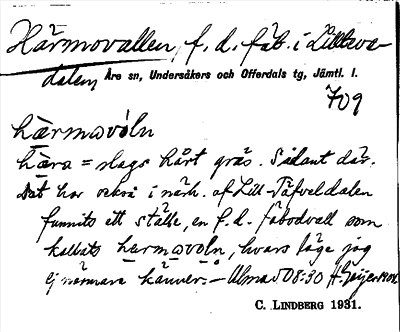 Härmovallen, f. d. fäb. i Lillåva-
dalen, Åre sn, Undersåkers och Offerdals tg, Jämtl. l.
709
hærmavòln
hæra = slags hårt gräs. Sådant där.
Det har också i närh. af Lill-Täfveldalen
funnits ett ställe, en f. d. fäbodvall som
kallats hærmavòln, hvars läge jag
ej närmare känner. – Ulma 508:30 H. Geijer 1908.
C. LINDBERG 1931.